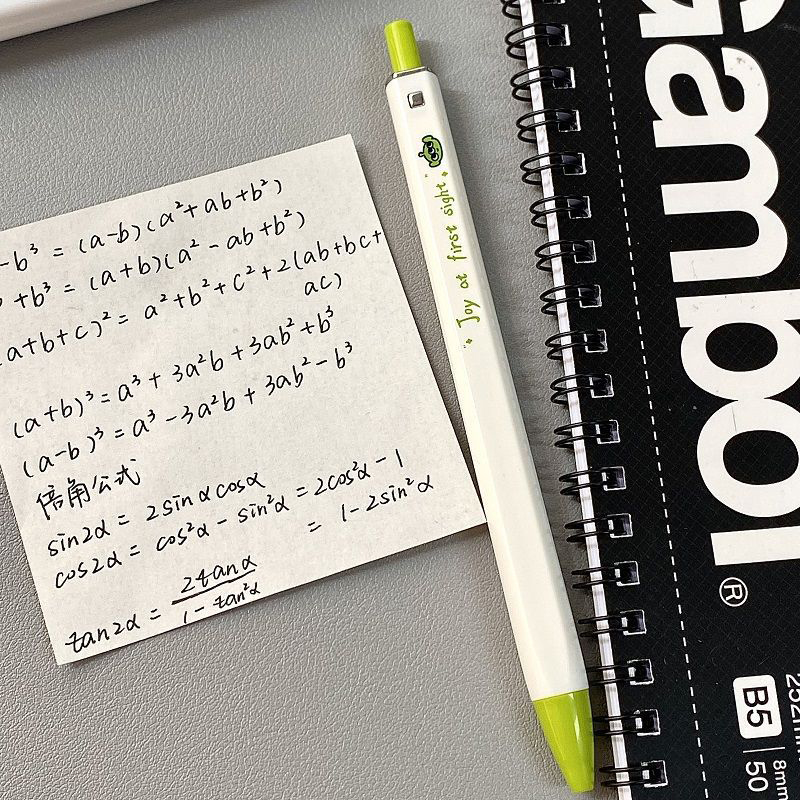 -b³ = (a-b)(a²+ab+b²)
³+b³ = (a+b)(a²-ab+b²)
(a+b+c)² = a²+b²+c²+2(ab+bc+
ac)
(a+b)³=a³+3a²b+3ab²+b³
(a-b)³=a³-3a²b+3ab²-b³
倍角公式
sin2α = 2sinαcosα
cos2α = cos²α-sin²α=2cos²α-1
= 1-2sin²α
tan2α = 2tanα / 1-tan²α
"Joy at first sight"
Gambol®
B5 50
8mm
252mm